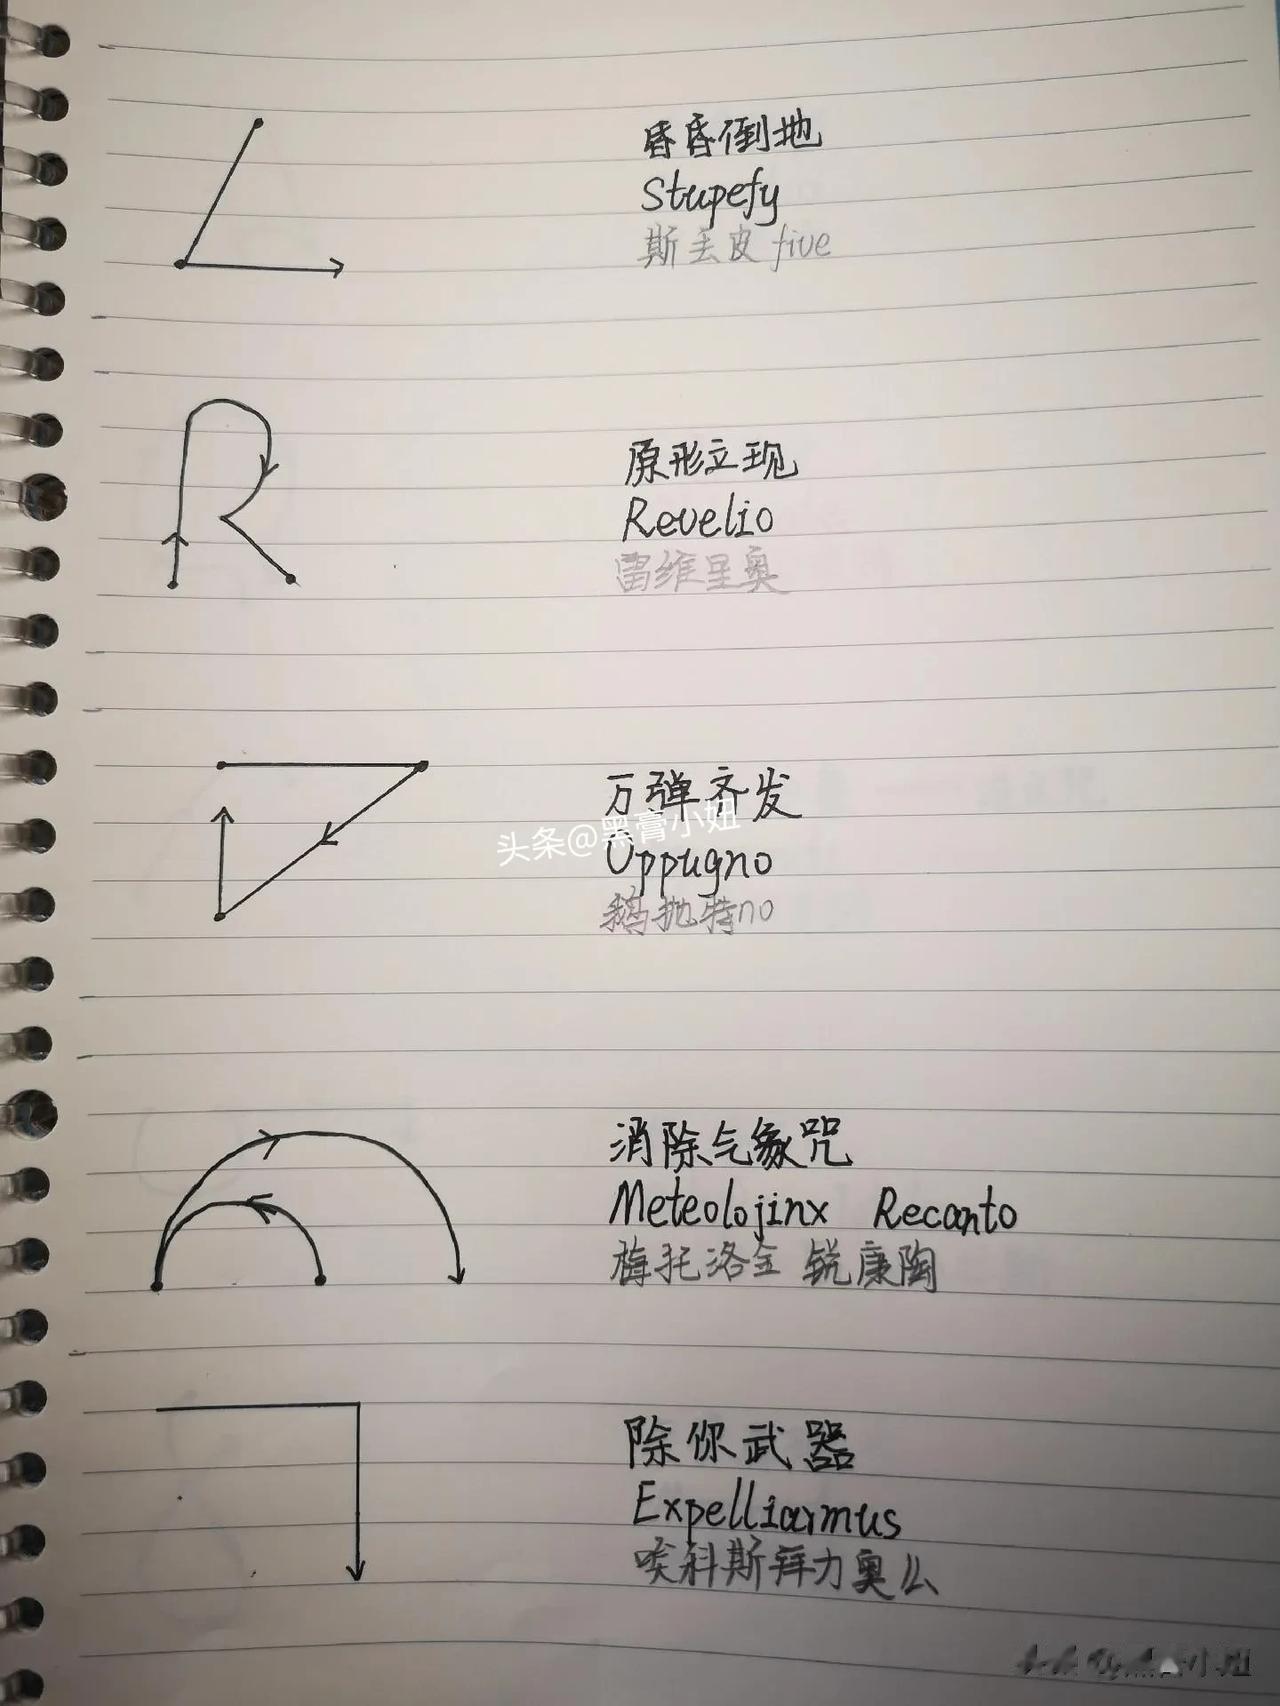 昏昏倒地
Stupefy
斯丢皮five
原形立现
Revelio
雷维里奥
万弹齐发
头条@黑膏小妞
Oppugno
鹅抛特no
消除气象咒
Meteolojinx Recanto
梅托洛金 锐康陶
除你武器
Expelliarmus
唉科斯拜力奥么